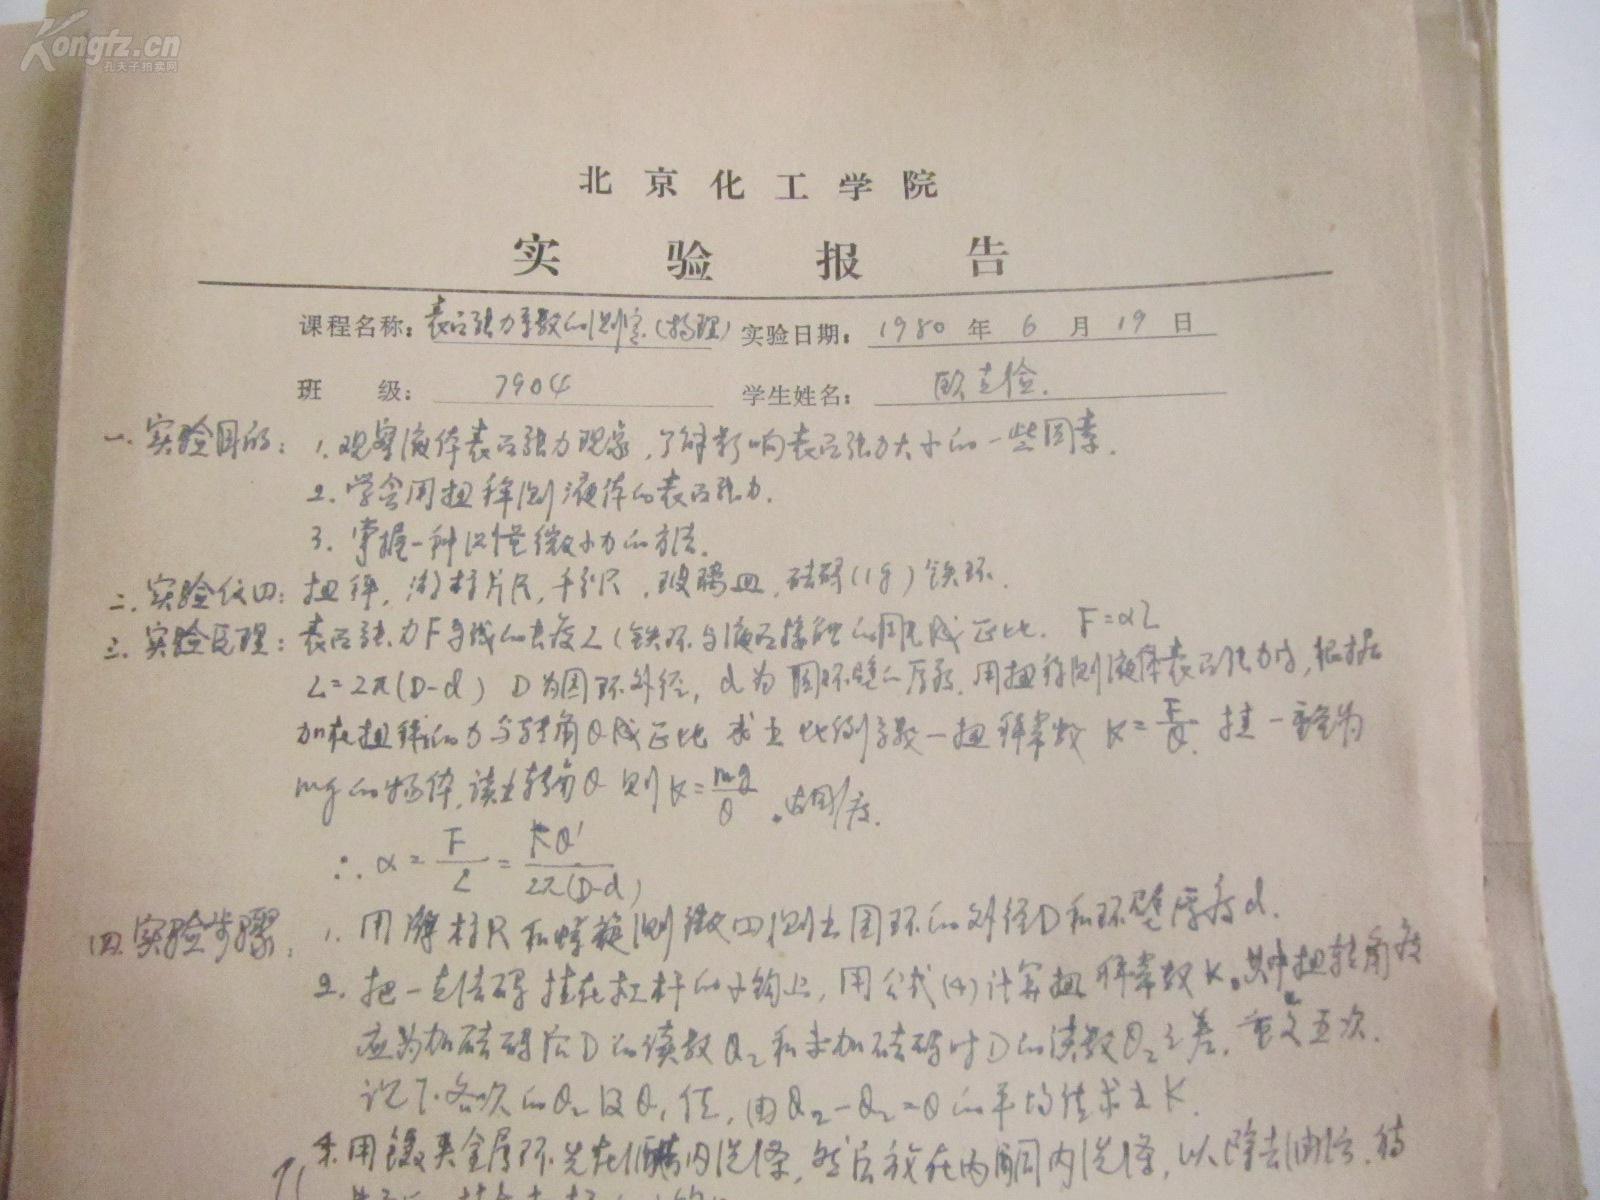 Kongfz.cn
孔夫子拍卖网
北京化工学院
实验报告
课程名称：表面张力系数的测定（物理） 实验日期：1980年6月19日
班级：7904 学生姓名：
一、实验目的：1. 观察液体表面张力现象，了解影响表面张力大小的一些因素．
2. 学会用扭秤测液体的表面张力．
3. 掌握一种测量微小力的方法．
二、实验仪四：扭秤，游标卡尺，千分尺，玻璃皿，砝码（1g）铁环．
三、实验原理：表面张力F与线的长度L（铁环与液面接触的周长成正比． F=αL
L=2π(D-d) D为圆环外径，d为圆环壁厚，用扭秤测液体表面张力时，根据
加在扭秤的力与转角θ成正比 求出比例系数—扭秤常数 K=F/θ．挂一重为
mg的物体，读出转角θ 则K=mg/θ
∴α=F/L=Kθ'/2π(D-d)
四、实验步骤：1. 用游标尺和螺旋测微四测出圆环的外径D和环壁厚度d．
2. 把一克砝码挂在杠杆的小钩上，用公式(4)计算扭秤常数K。其中扭转角度
应为加砝码后D的读数θ2和未加砝码时D的读数θ2之差，重复五次．
记下各次的θ2及θ1值，由θ2-θ2=θ的平均值求出K．
用镊夹金属环先在内洗涤，然后放在丙酮内洗涤，以除去油污．待